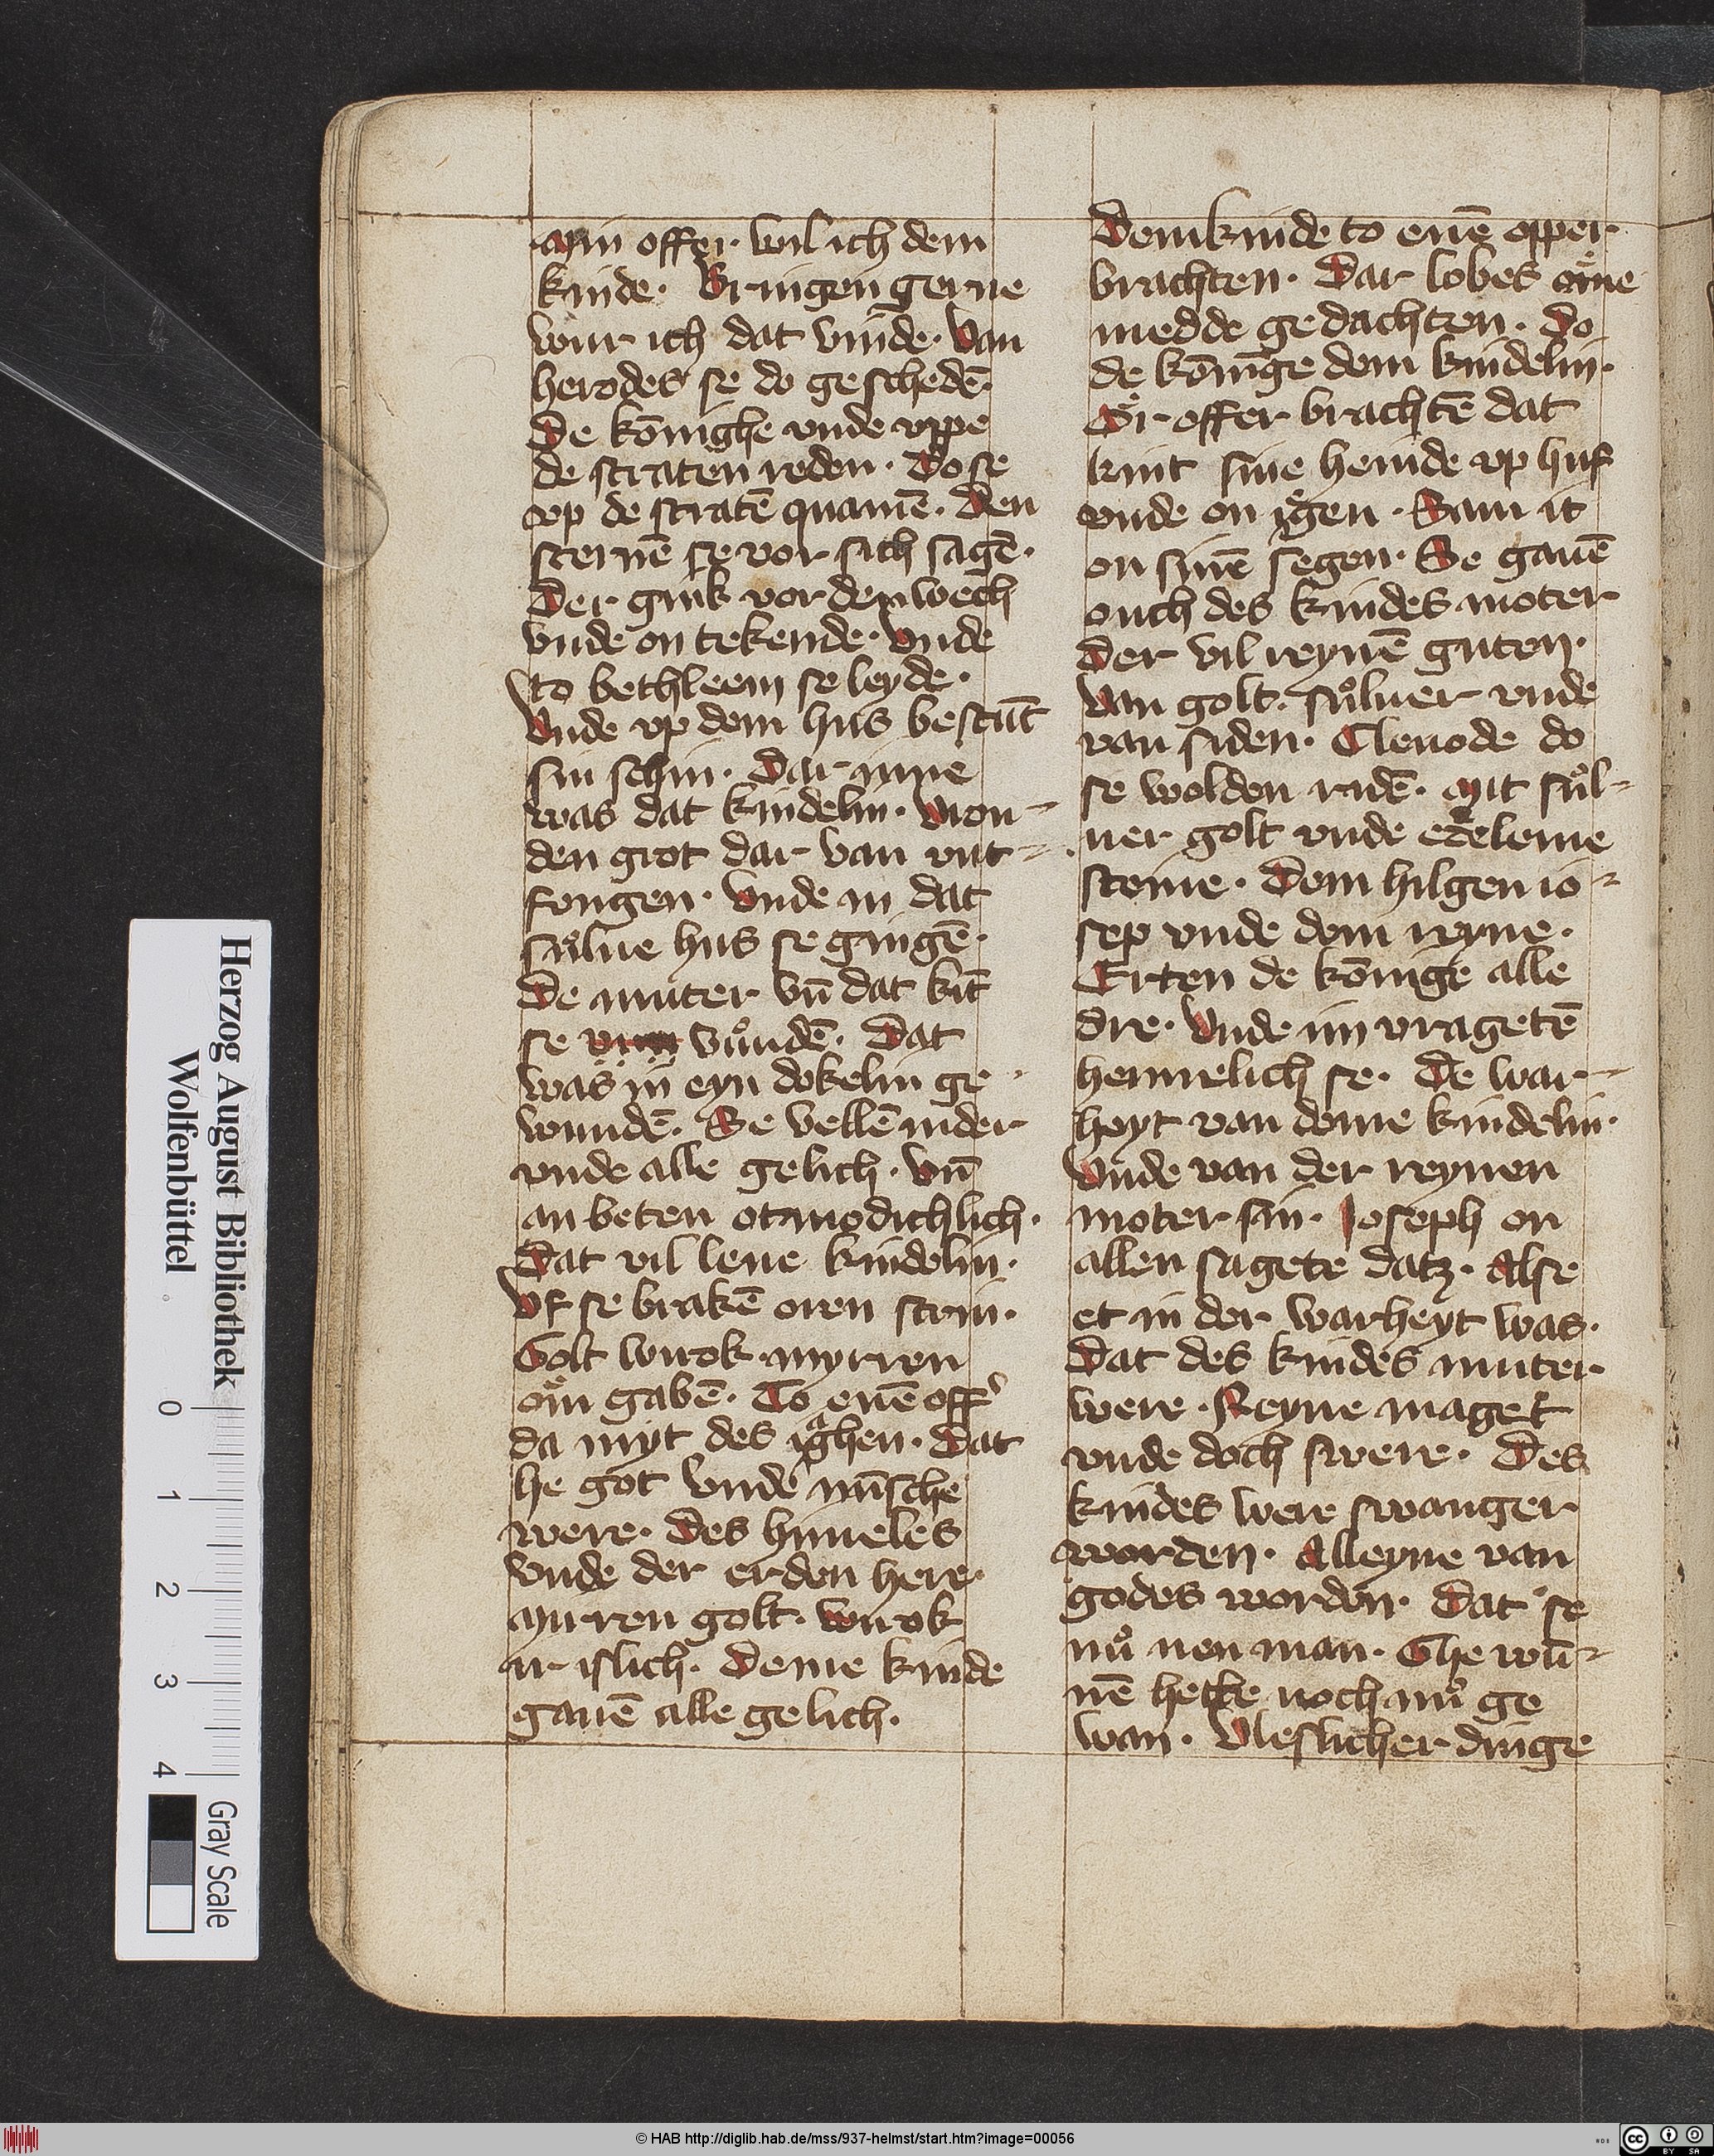 Myn offer wil ich dem
kinde. Bringen gerne
wur ich dat vinde. Van
herodes se do geschedē.
De kōnighe vnde vppe
de straten reden. Do se
vp de stratē quamē. Den
sternē se vor sich sagē.
Der gink vor den wech
vnde on tekende. Vnde
to bethleem se leyde.
Vnde vp dem hus bestūt
sin schin. Dar inne
was dat kindelin. Vron-
den grot dar van vnt-
fengen. Vnde in dat
sůlue hus se gingē.
De muter vn̄ dat kīt
se vůndē. Dat
was in eyn dokelin ge-
wundē. Se vellē nider
vnde alle gelich. Vn̄
an beten otmodichlich.
Dat vil leue kindelin.
Vf se brakē oren scrin.
Golt wirok myrren
on gabē. To enē off
da myt des iaghen. Dat
he got vnde mīsche
were. Des himeles
vnde der erden here.
Mirren golt. Wirok
ir islich. Deme kinde
gauē alle gelich.
Dem kinde to enē opper
brachten. Dar lobes ome
medde gedachten. Do
de kōninge dem kindelin.
Or offer brachtē dat
kint sine heinde vp huf
vnde on iegen. Gam it
on sinē segen. Se gauē
ouch des kindes moter
Der vil reynē guten.
Van golt. sůluer vnde
van siden. Clenode do
se wolden ridē. Mit sůl-
uer golt vnde edeleme
steine. Dem hilgen io-
sep vnde dem reyne.
Erten de kōnige alle
dre. Vnde im vragetē
hemelich se. De war-
heyt van deme kindelin.
Vnde van der reynen
moter sin. Joseph on
allen sagete datz. Alse
et in der warheyt was.
Dat des kindes muter
were. Reyne maget
vnde doch swere. Des
kindes were swanger
worden. Alleyne van
godes worden. Dat se
nů nen man. Ghe wū-
nē hette noch nů ge
wan. Vleslicher dinge
Herzog August Bibliothek
Wolfenbüttel
0 1 2 3 4
Gray Scale
© HAB http://diglib.hab.de/mss/937-helmst/start.htm?image=00056
cc BY SA